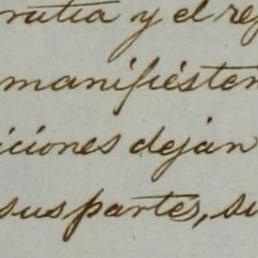 ratia y el re
manifiésten
iciones dejan
sus partes, su